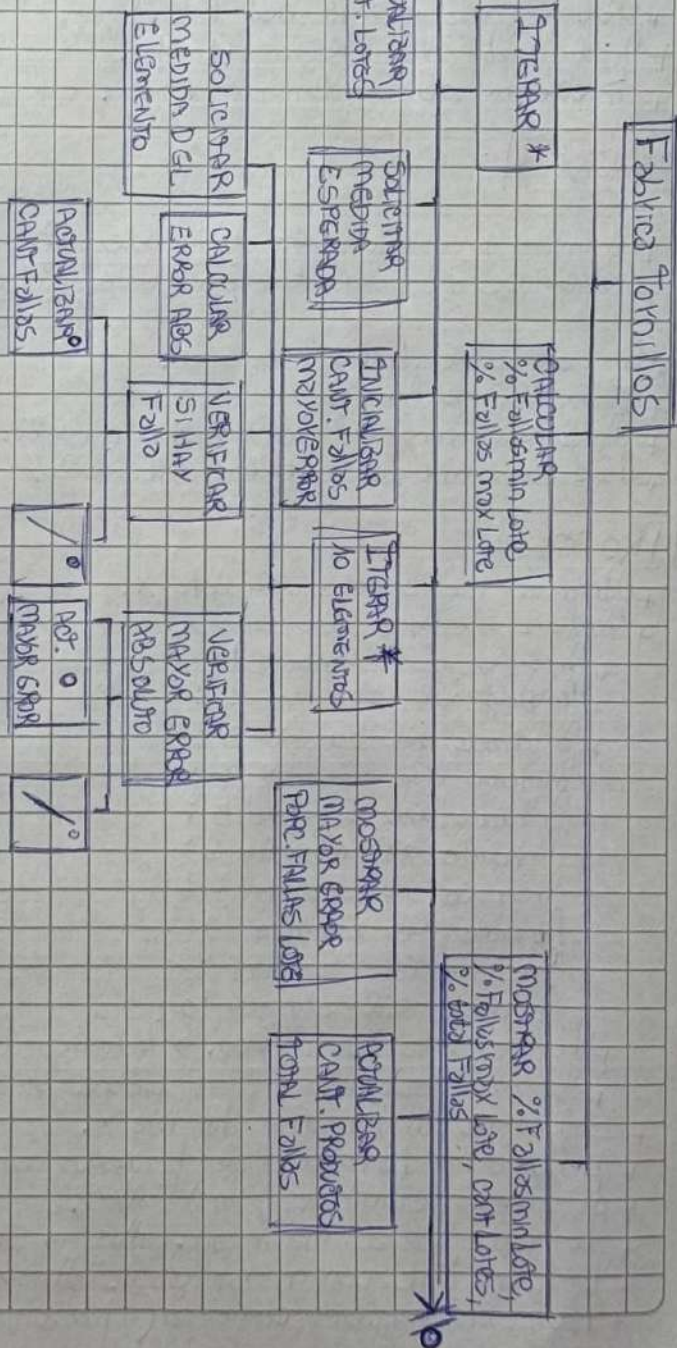 Fabrica Tornillos
ITERAR *
CALCULAR
% Fallas min Lote
% Fallas max Lote
MOSTRAR % Fallas min Lote,
% Fallas max Lote, cant Lotes,
% total Fallas
ALIZAR
T. LOTES
SOLICITAR
MEDIDA
ESPERADA
INICIALIZAR
CANT. Fallas
MAYOR ERROR
ITERAR *
10 ELEMENTOS
MOSTRAR
MAYOR ERROR
PORC. FALLAS LOTE
ACTUALIZAR
CANT. PRODUCTOS
TOTAL Fallas
SOLICITAR
MEDIDA DEL
ELEMENTO
CALCULAR
ERROR ABS
VERIFICAR
SI HAY
Falla
VERIFICAR
MAYOR ERROR
ABSOLUTO
ACTUALIZAR°
CANT Fallas
/°
ACT. °
MAYOR EROR
/°